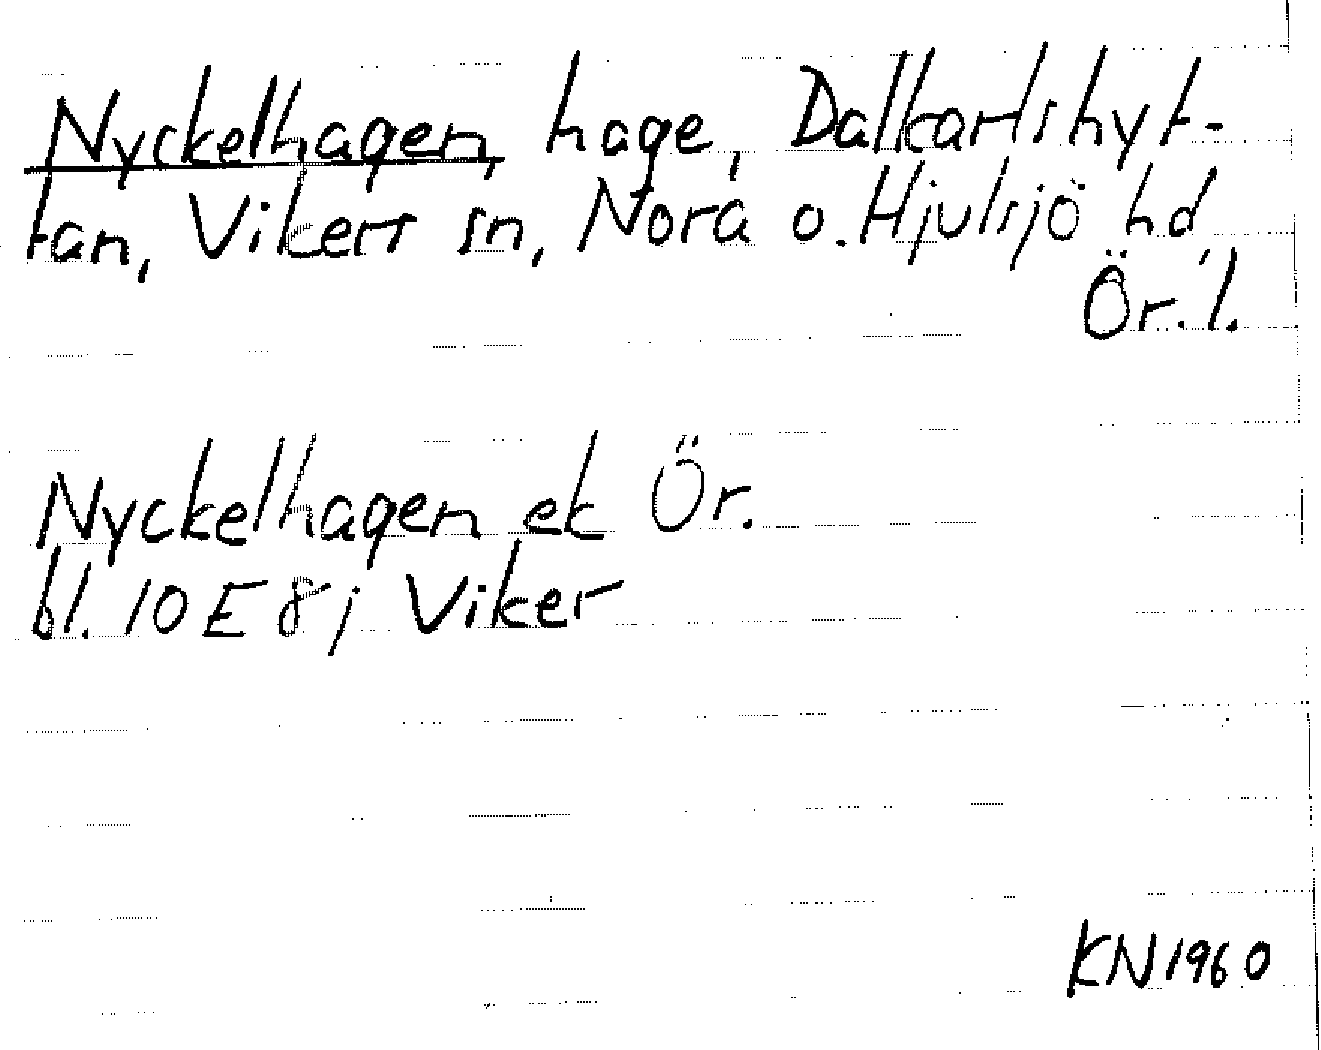 Nyckelhagen, hage, Dalkarlshyt-
tan, Vikers sn, Nora o. Hjulsjö hd,
Ör. l.
Nyckelhagen ek Ör.
bl. 10 E 8 j Viker
KN 1960